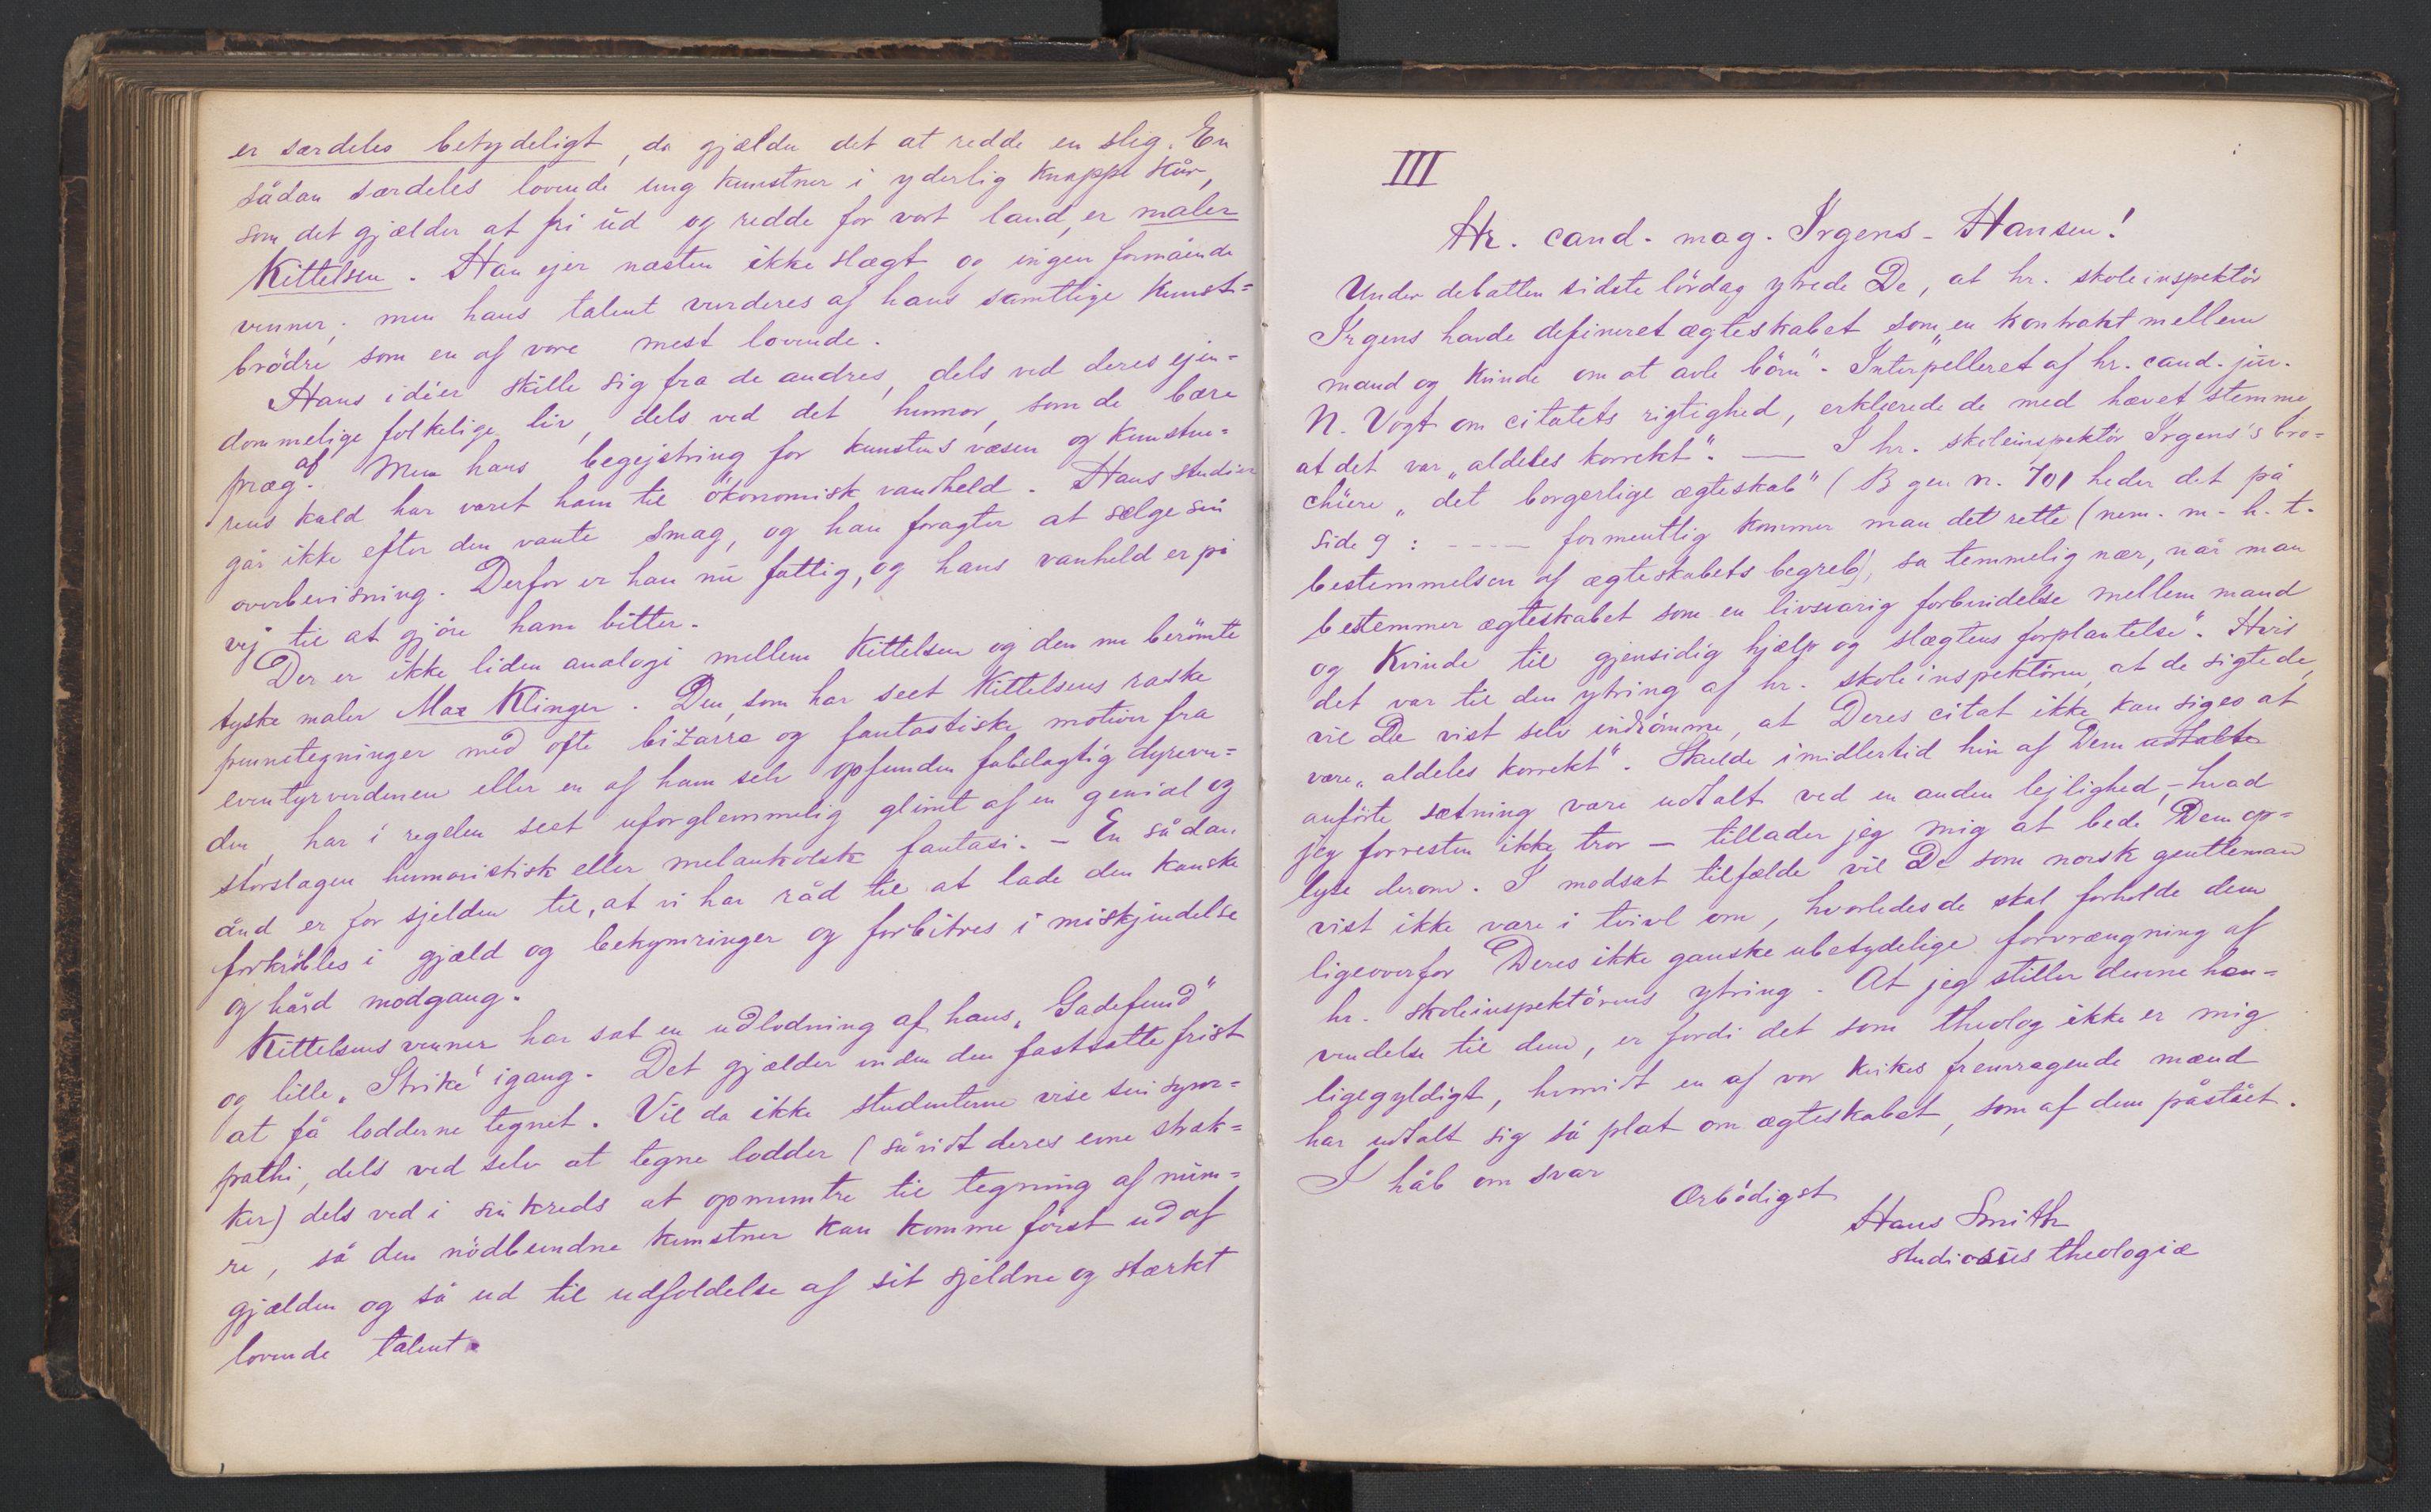 er særdeles betydeligt, da gjælder det at redde en slig. En
sådan særdeles lovende ung kunstner i yderlig knappe kår,
som det gjælder at fri ud og redde for vort land, er maler
Kittelsen. Han ejer næsten ikke slægt og ingen formående
venner; men hans talent vurderes af hans samtlige kunst=
brödre som en af vore mest lovende.
Hans idéer skille sig fra de andres, dels ved deres ejen=
dommelige folkelige liv, dels ved det humor, som de bære
præg af. Men hans begejstring for kunstens væsen og kunstne=
rens kald har været ham til ökonomisk vanheld. Hans studier
går ikke efter den vante smag, og han foragter at sælge sin
overbevisning. Derfor er han nu fattig, og hans vanheld er på
vej til at gjöre ham bitter.
Der er ikke liden analogi mellem Kittelsen og den nu berömte
tyske maler Max Klinger. Den, som har seet Kittelsens raske
pennetegninger med ofte bizarre og fantastiske motiver fra
eventyrverdenen eller en af ham selv opfunden fabelagtig dyreve=
den, har i regelen seet uforglemmelig glimt af en genial og
storslagen humoristisk eller melankolsk fantasi. – En sådan
ånd er for sjelden til, at vi har råd til at lade den kanske
forkröbles i gjæld og bekymringer og forbitres i miskjendelse
og hård modgang.
Kittelsens venner har sat en udlodning af hans „Gadefund"
og lille „Strike" igang. Det gjælder inden den fastsatte frist
at få lodderne tegnet. Vil da ikke studenterne vise sin sym=
pathi, dels ved selv at tegne lodder (såvidt deres evne stræk=
ker) dels ved i sin kreds at opmuntre til tegning af num=
re, så den nödbundne kunstner kan komme först ud af
gjælden og så ud til udfoldelse af sit sjeldne og stærkt
lovende talent.
III
Hr. cand. mag. Irgens-Hansen!
Under debatten sidste lördag ytrede De, at hr. skoleinspektör
Irgens havde defineret ægteskabet som „en kontrakt mellem
mand og kvinde om at avle börn". Interpelleret af hr. cand. jur.
N. Vogt om citatets rigtighed, erklærede de med hævet stemme,
at det var „aldeles korrekt". — I hr. skoleinspektör Irgens's bro=
chüre „det borgerlige ægteskab" (B gen n. 701 heder det på
side 9: ---- formentlig kommer man det rette (nem. m. h. t.
bestemmelsen af ægteskabets begreb), så temmelig nær, når man
bestemmer ægteskabet som en livsvarig forbindelse mellem mand
og kvinde til gjensidig hjælp og slægtens forplantelse". Hvis
det var til den ytring af hr. skoleinspektören, at de sigtede,
vil De vist selv indrömme, at Deres citat ikke kan siges at
være „aldeles korrekt". Skulde imidlertid hin af Dem udtalte
anförte sætning være udtalt ved en anden lejlighed, – hvad
jeg forresten ikke tror – tillader jeg mig at bede Dem op=
lyse derom. I modsat tilfælde vil De som norsk gentleman
vist ikke være i tvivl om, hvorledes de skal forholde dem
ligeoverfor Deres ikke ganske ubetydelige forvrængning af
hr. skoleinspektörens ytring. At jeg stiller denne hen=
vendelse til dem, er fordi det som theolog ikke er mig
ligegyldigt, hvorvidt en af vor kirkes fremragende mænd
har udtalt sig så plat om ægteskabet, som af dem påstået.
I håb om svar
Ærbödigst
Hans Smith
studiosus theologiæ